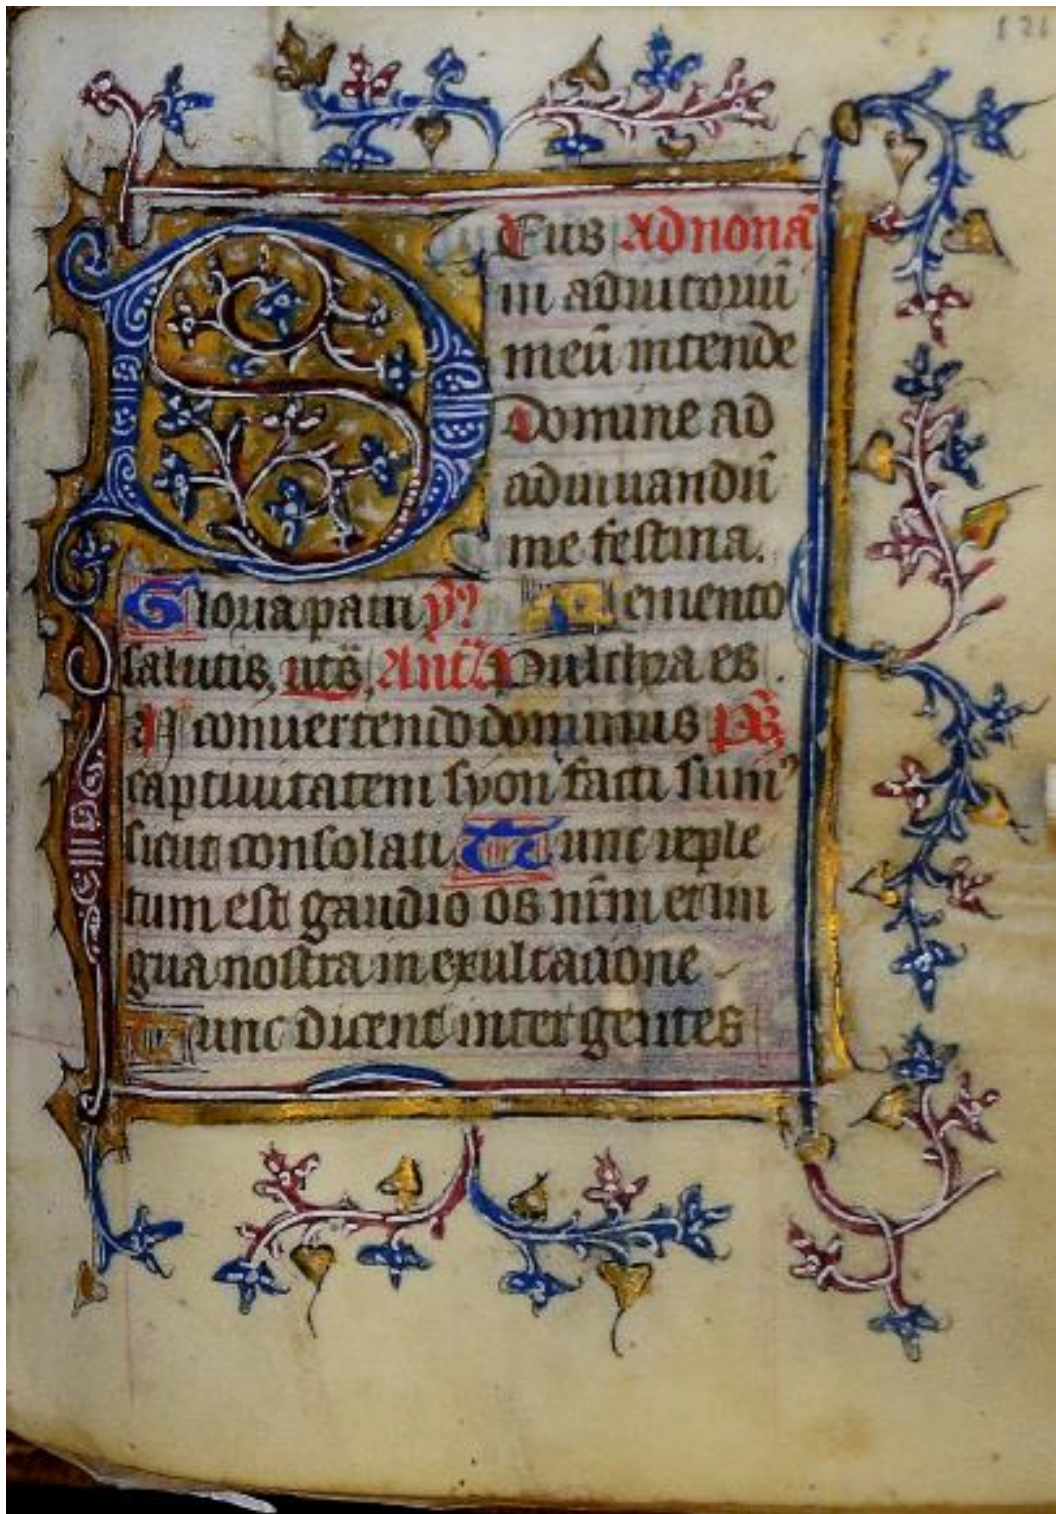 121
Deus Ad nonā
in adiutoriū
meū intende
Domine ad
adiuuandū
me festina.
Gloria patri ymꝰ Memento
salutis, utš, Antᷓ Pulchra es.
In conuertendo dominus pš
captiuitatem syon facti sumꝰ
sicut consolati Tunc reple
tum est gaudio os nr̄m et lin
gua nostra in exultatione
Tunc dicent inter gentes